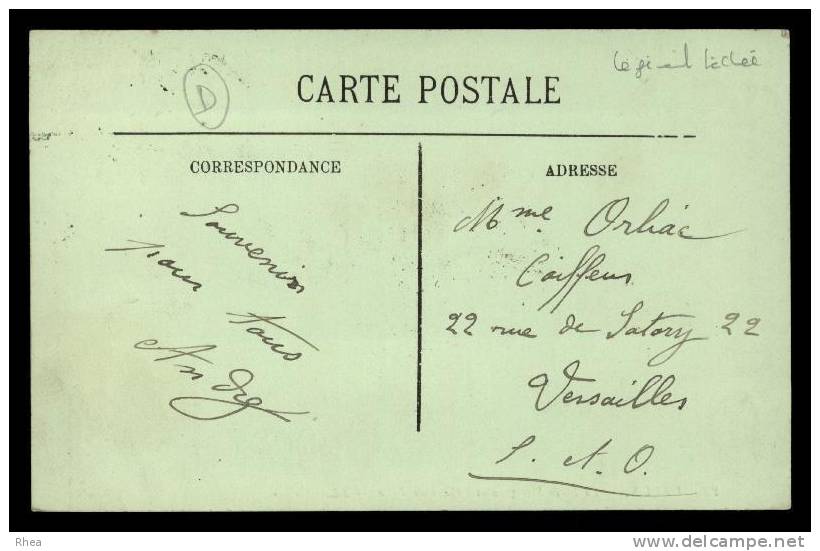 D
CARTE POSTALE
CORRESPONDANCE
Souvenirs
pour tous
André
ADRESSE
Mme Orliac
Coiffeur
22 rue de Satory 22
Versailles
S. et. O.
Rhea
delcampe.net